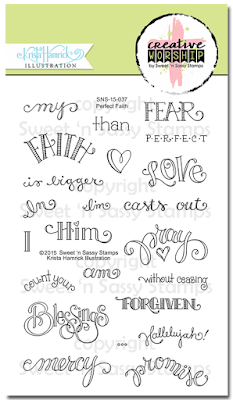 Krista Hamrick
ILLUSTRATION
creative
WORSHIP
by Sweet 'n Sassy Stamps
SNS-15-037
Perfect Faith
my than FEAR
FAITH PERFECT
is bigger LOVE
In Im casts out
I Him pray
©2015 Sweet 'n Sassy Stamps
Krista Hamrick Illustration
count your am without ceasing
Blessings FORGIVEN
... Hallelujah!
mercy promise
copyright
Sweet 'n Sassy Stamps
copyright
Sweet 'n Sassy Stamps
copyright
Sweet 'n Sassy Stamps